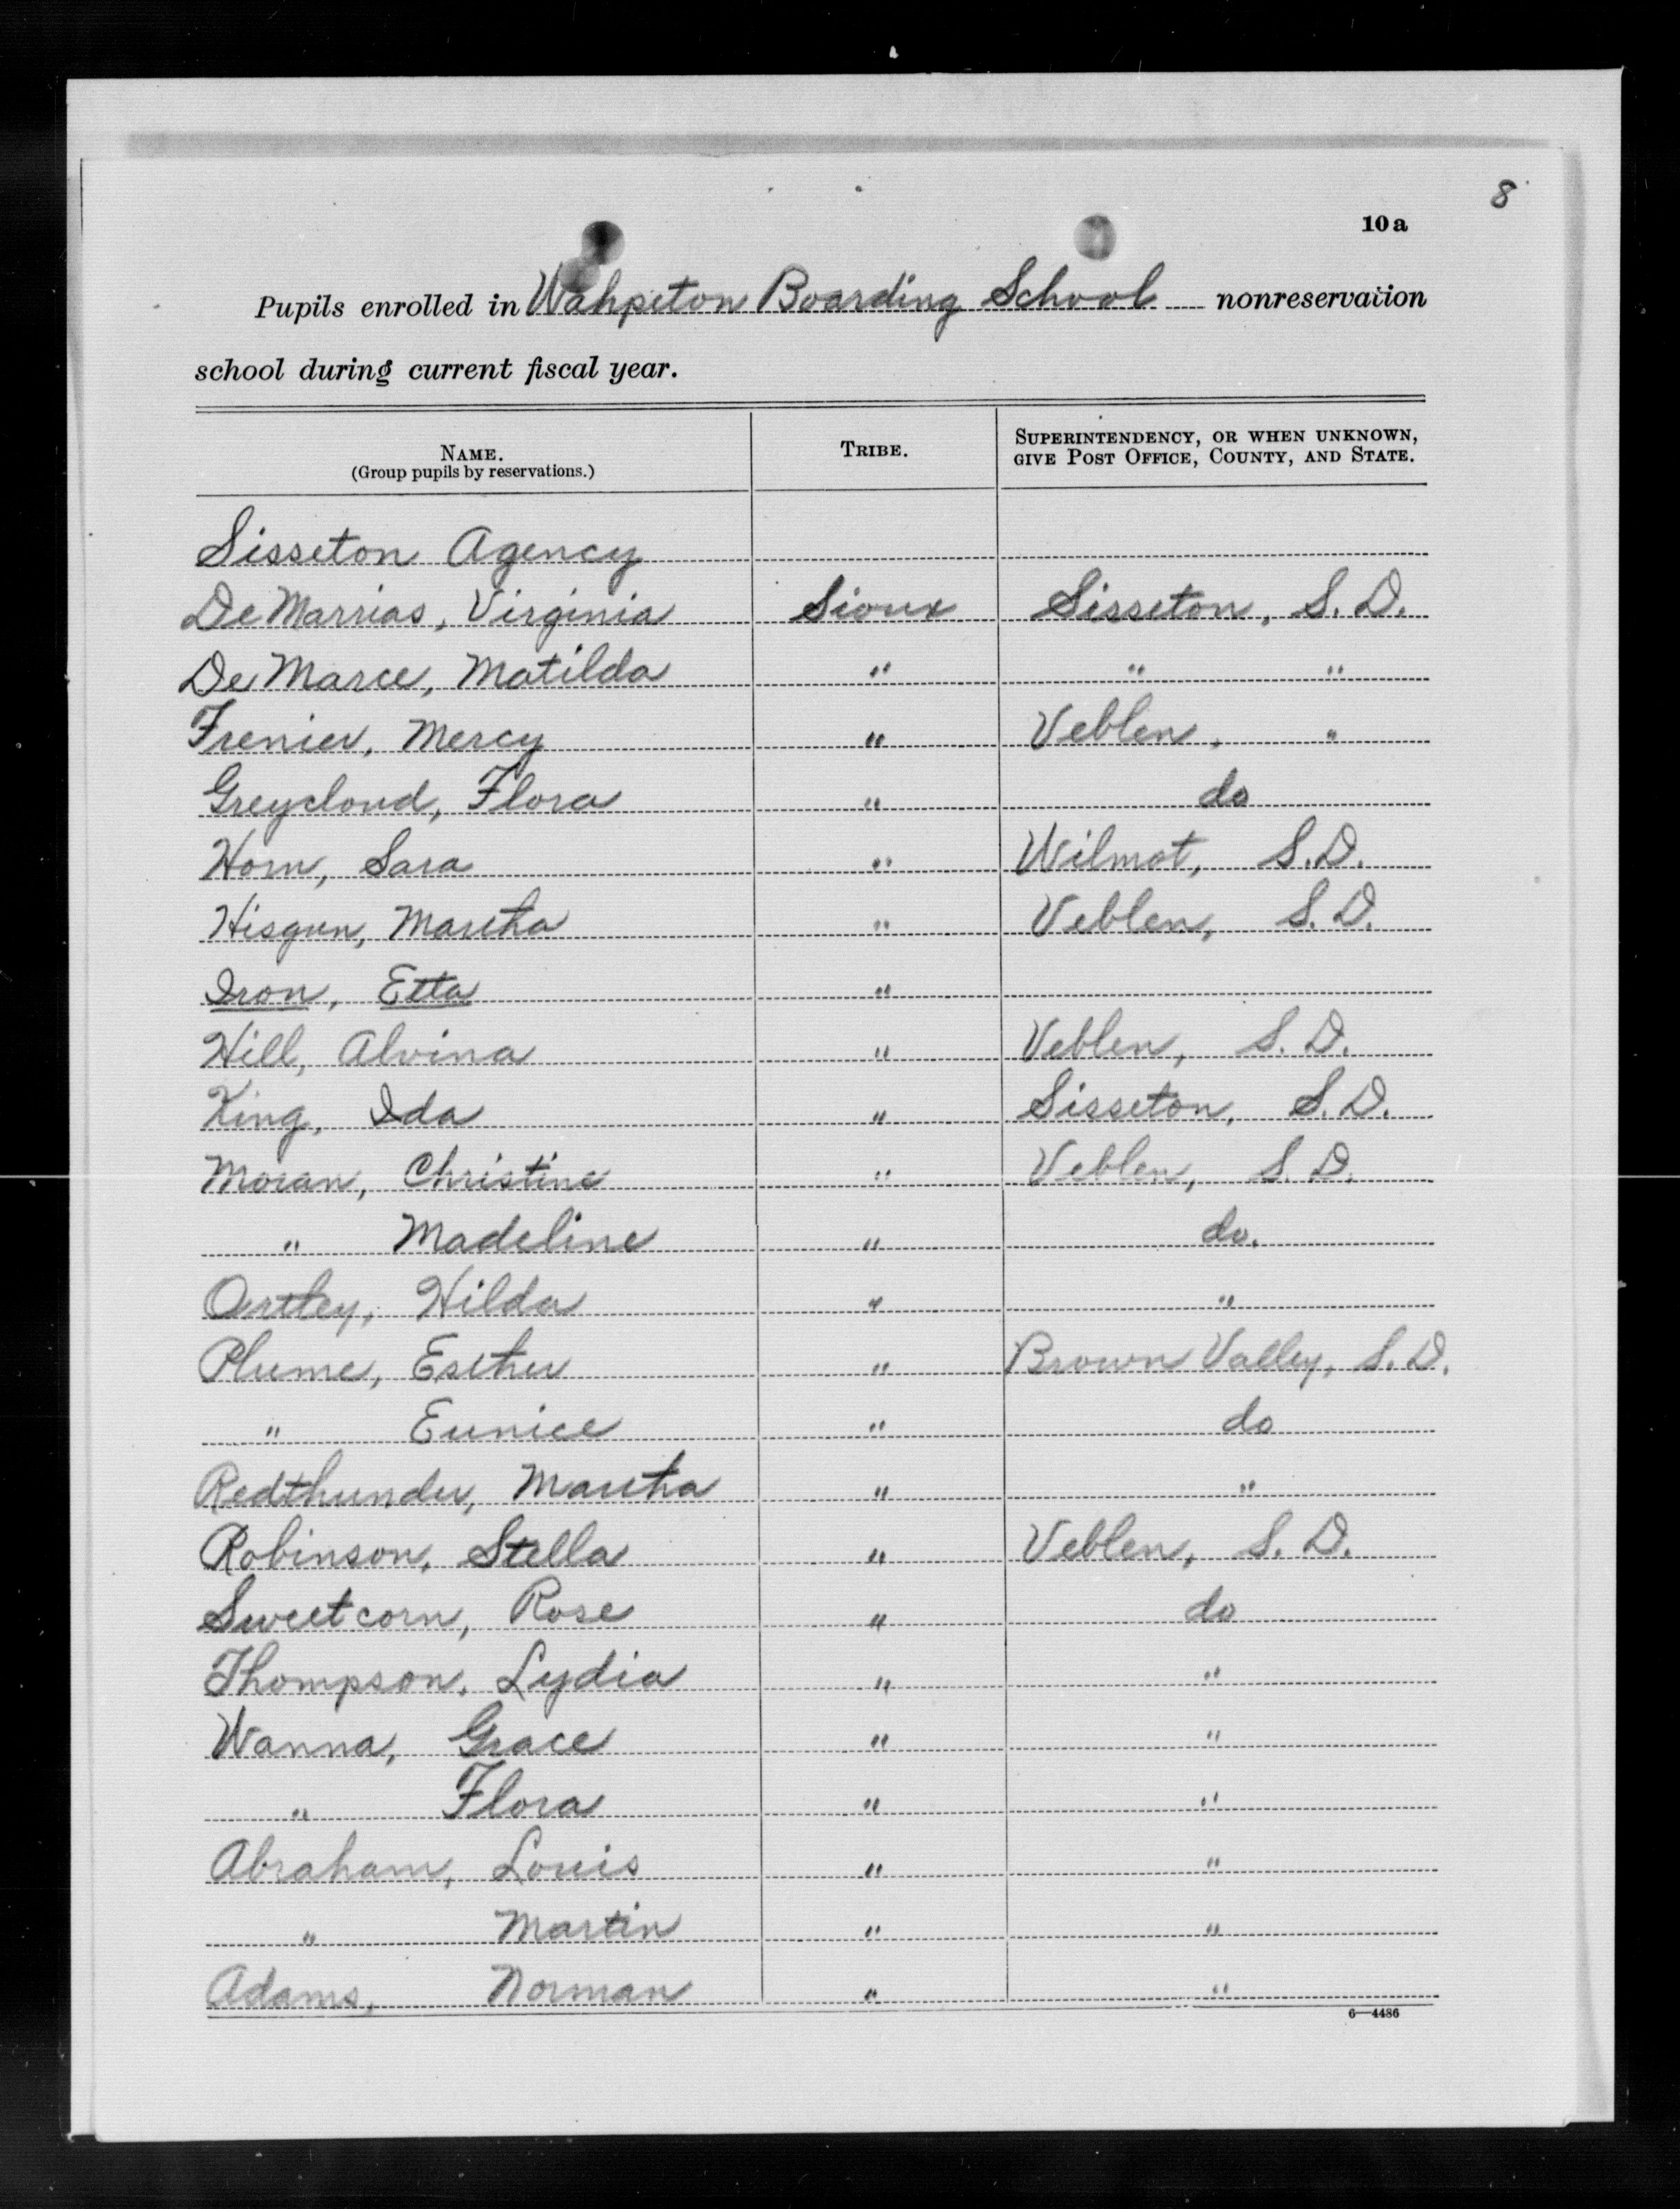 8
10a
Pupils enrolled in Wahpeton Boarding School nonreservation
school during current fiscal year.
NAME. (Group pupils by reservations.) TRIBE. SUPERINTENDENCY, OR WHEN UNKNOWN, GIVE POST OFFICE, COUNTY, AND STATE.
Sisseton Agency
De Marrias, Virginia Sioux Sisseton, S.D.
De Marce, Matilda " " "
Frenier, Mercy " Veblen, "
Greycloud, Flora " do
Horn, Sara " Wilmot, S.D.
Hisgun, Martha " Veblen, S.D.
Iron, Etta "
Hill, Alvina " Veblen, S.D.
King, Ida " Sisseton, S.D.
Moran, Christine " Veblen, S.D.
" Madeline " do.
Ortley, Hilda " "
Plume, Esther " Brown Valley, S.D.
" Eunice " do
Redthunder, Martha " "
Robinson, Stella " Veblen, S.D.
Sweetcorn, Rose " do
Thompson, Lydia " "
Wanna, Grace " "
" Flora " "
Abraham, Louis " "
" Martin " "
Adams, Norman " "
6—4486